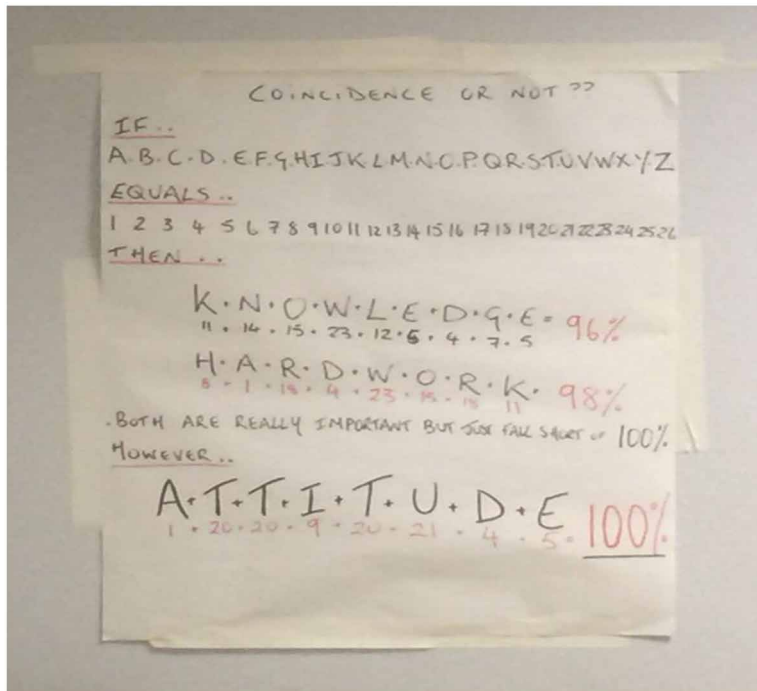 COINCIDENCE OR NOT ??
IF..
A.B.C.D.E.F.G.H.I.J.K.L.M.N.O.P.Q.R.S.T.U.V.W.X.Y.Z
EQUALS..
1 2 3 4 5 6 7 8 9 10 11 12 13 14 15 16 17 18 19 20 21 22 23 24 25 26
THEN..
K+N+O+W+L+E+D+G+E= 96%
11+14+15+23+12+5+4+7+5
H+A+R+D+W+O+R+K= 98%
8+1+18+4+23+15+18+11
.BOTH ARE REALLY IMPORTANT BUT JUST FALL SHORT OF 100%
HOWEVER..
A+T+T+I+T+U+D+E 100%
1+20+20+9+20+21+4+5=